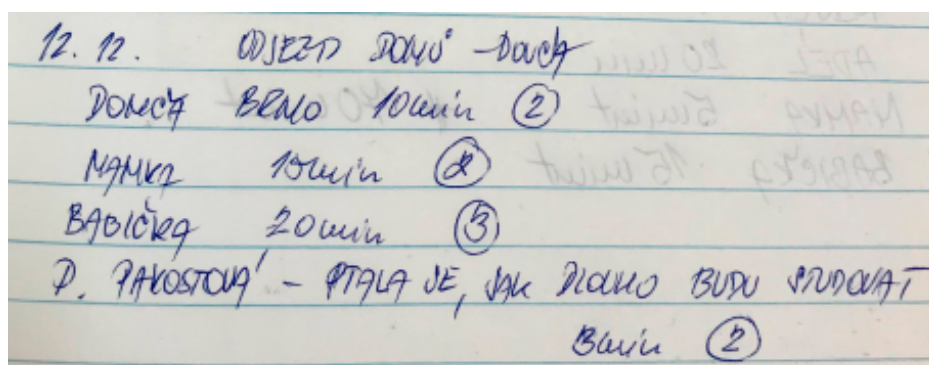 12. 12. ODJEZD DOMŮ - Domča
DOMČA BRNO 10 min 2
MAMKA 15 min 2
BABIČKA 20 min 3
P. PAKOSTOVÁ - PTALA SE, JAK DLOUHO BUDU STUDOVAT
3 min 2